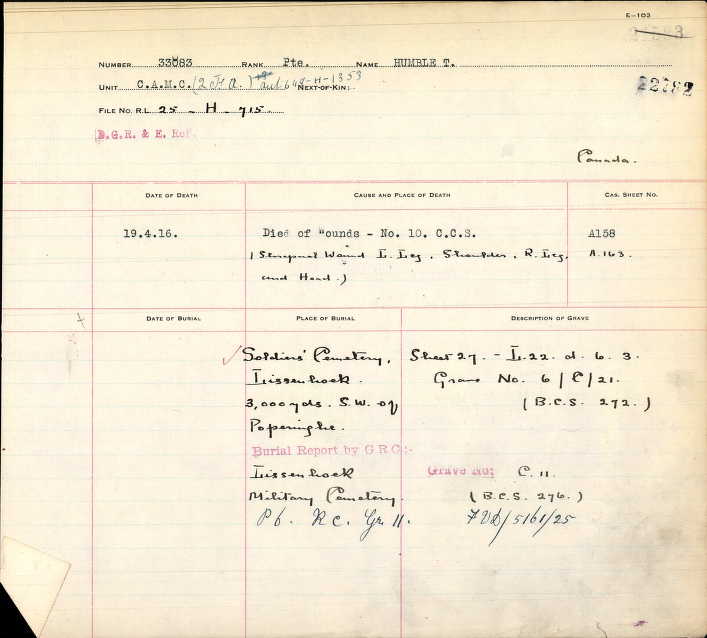 E-103
NUMBER 33083 RANK Pte. NAME HUMBLE T.
UNIT C.A.M.C. (2 F A.) 649-H-1353 NEXT-OF-KIN
22782
FILE NO. R.L. 25 - H - 715.
D.G.R. & E. Ref.
Canada.
DATE OF DEATH CAUSE AND PLACE OF DEATH CAS. SHEET NO.
19.4.16. Died of Wounds - No. 10. C.C.S. A158
(Shrapnel Wound L. Leg. Shoulder. R. Leg. A.163.
and Head.)
DATE OF BURIAL PLACE OF BURIAL DESCRIPTION OF GRAVE
Soldiers' Cemetery, Sheet 27. - L. 22. d. 6. 3.
Lissenhoek. Grave No. 6/C/21.
3,000 yds. S.W. of (B.C.S. 272.)
Poperinghe.
Burial Report by G R C:-
Lissenhoek Grave No: C. 11.
Military Cemetery. (B.C.S. 276.)
P 6. R C. Gr. 11. FVD/5161/25